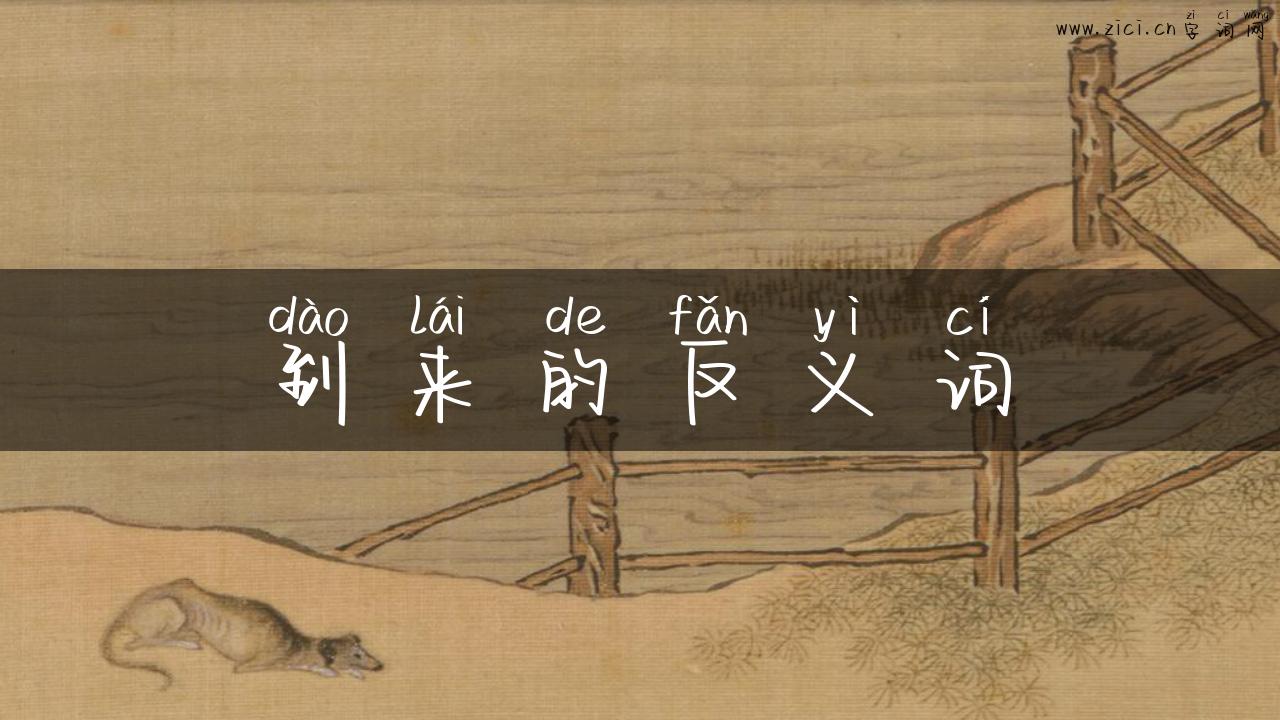 zì cí wǎng
www.zici.cn 字词网
dào lái de fǎn yì cí
到来的反义词